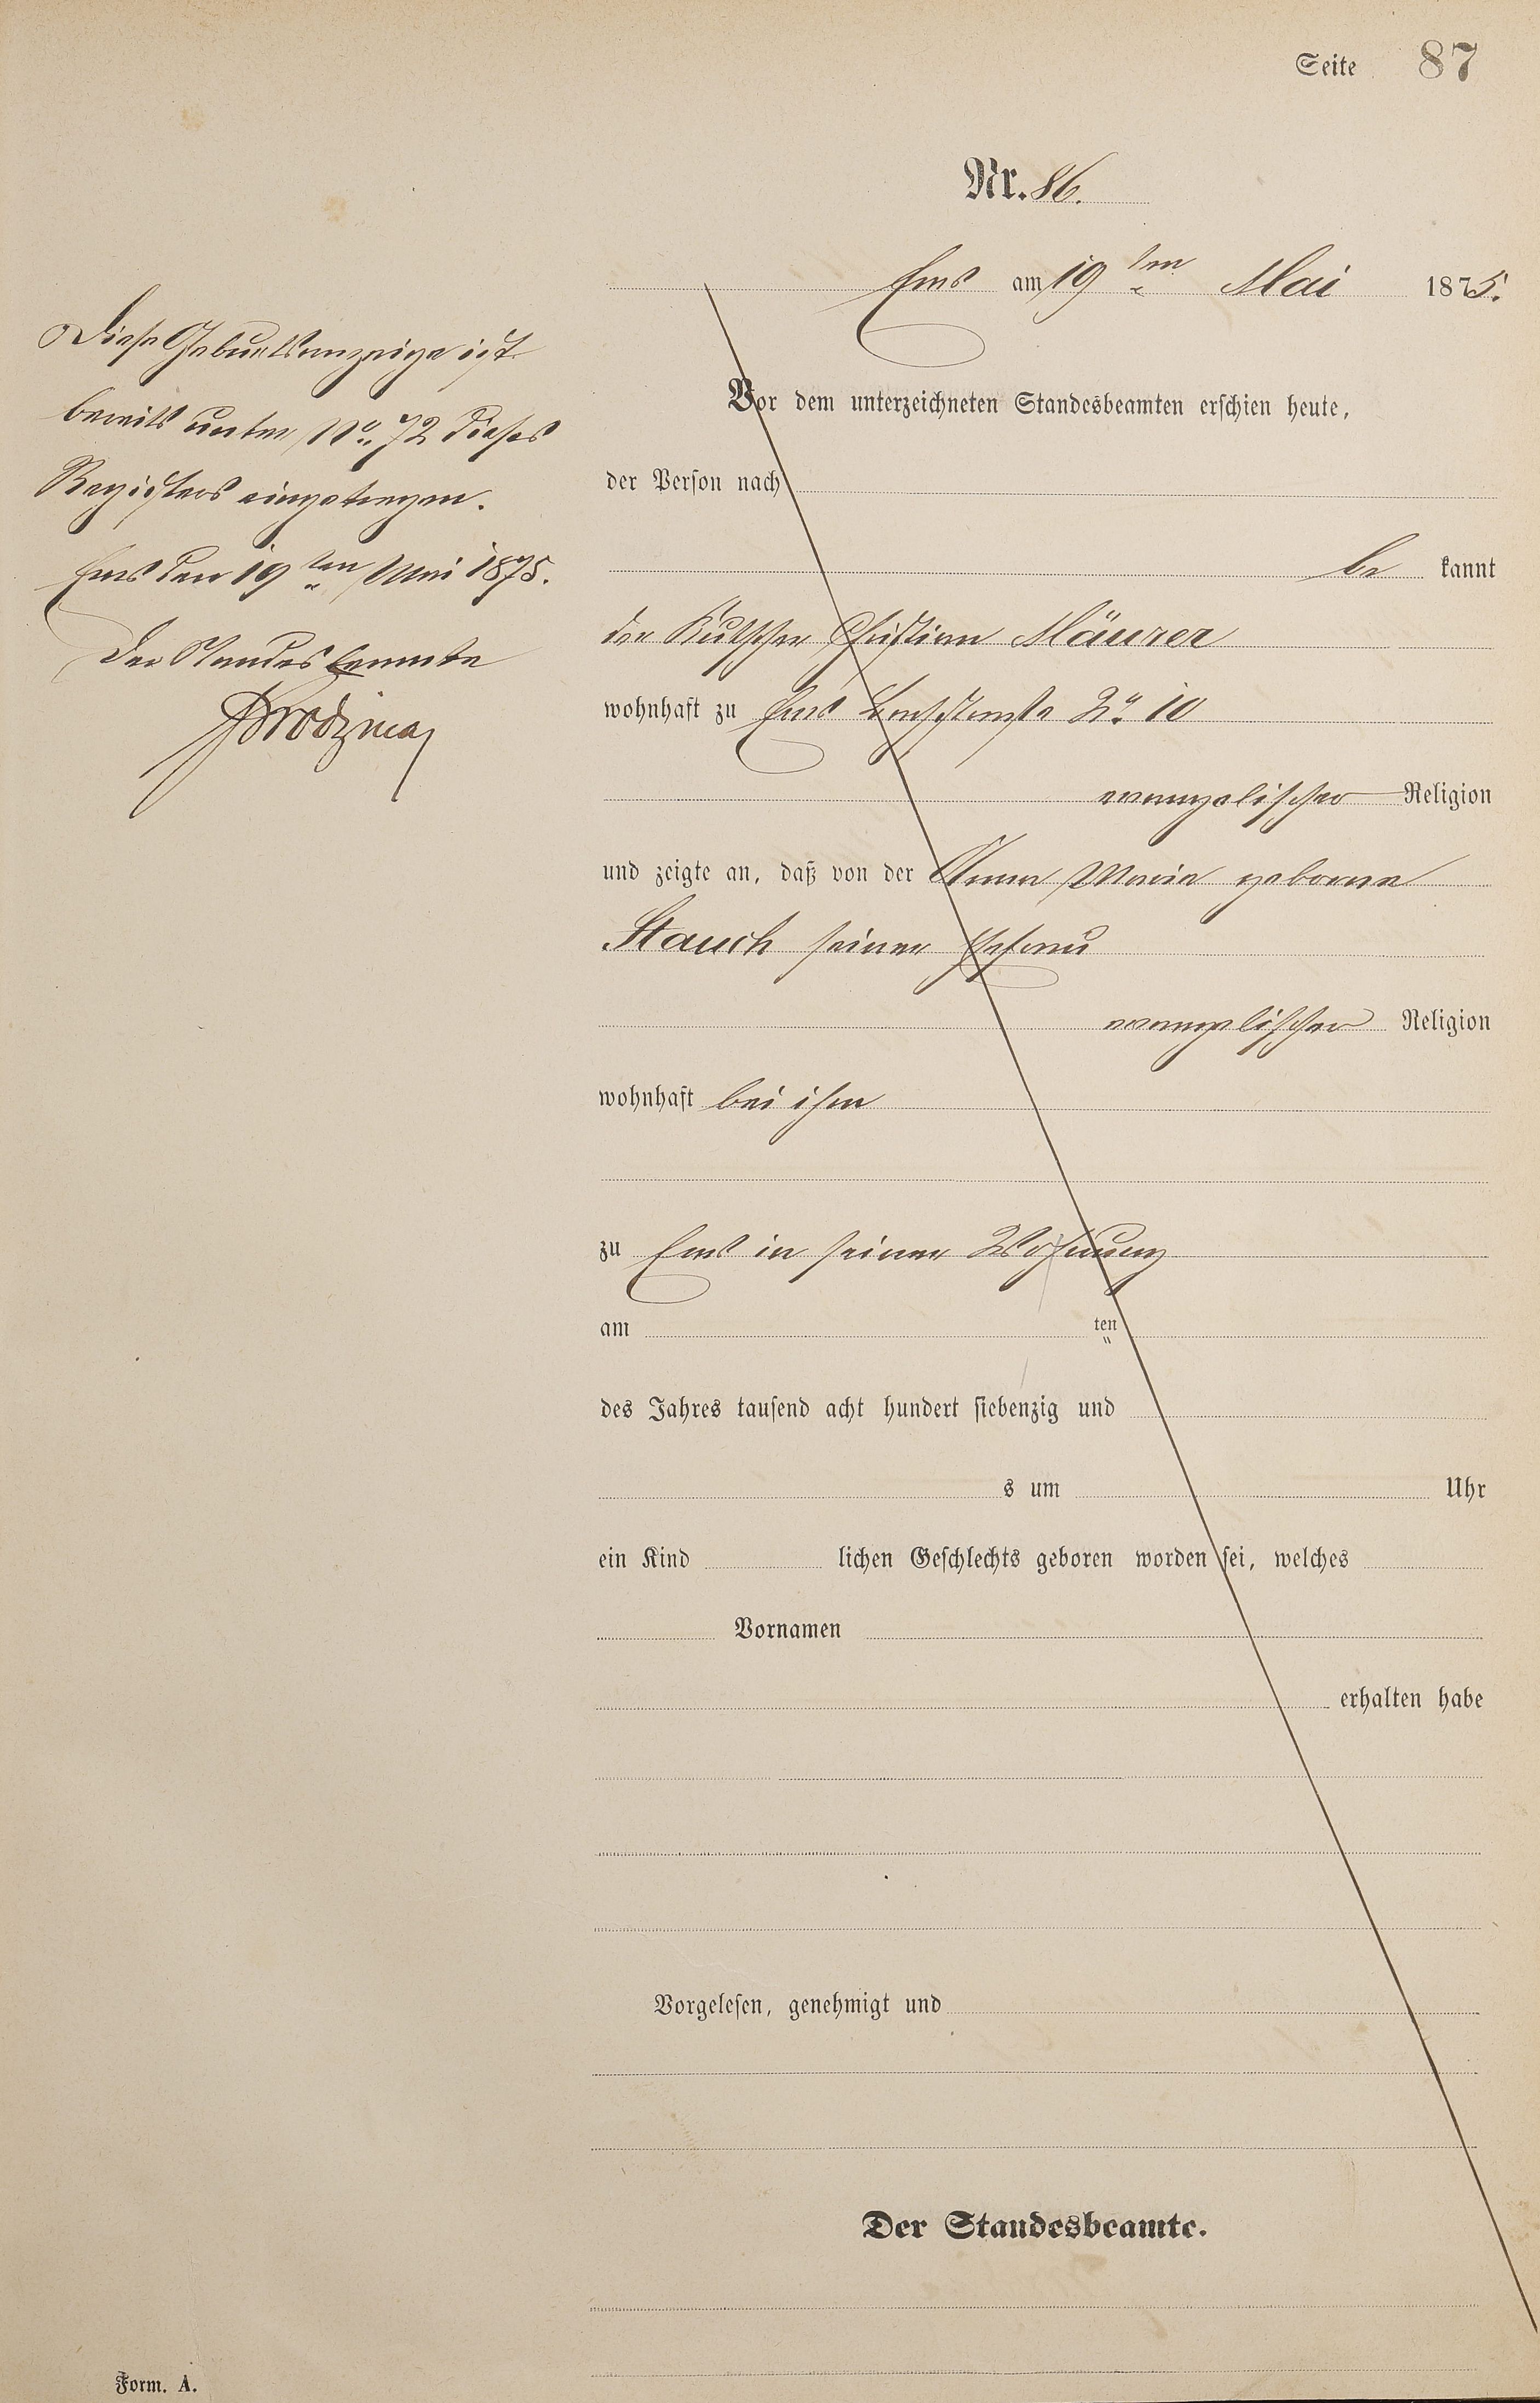 Seite 87
Nr. 86.
Ems am 19ten Mai 1875.
Diese Geburtsanzeige ist
bereits unter No. 72 dieses
Registers eingetragen.
Ems den 19ten Mai 1875.
Der Standesbeamte
Vor dem unterzeichneten Standesbeamten erschien heute,
der Person nach
be kannt
der Kutscher Christian Mäurer
wohnhaft zu Ems No. 10
evangelischer Religion
und zeigte an, daß von der Anna Maria geborene
Stauch seiner Ehefrau
evangelischer Religion
wohnhaft bei ihm
zu Ems in seiner Wohnung
am ten
des Jahres tausend acht hundert siebenzig und
s um Uhr
ein Kind lichen Geschlechts geboren worden sei, welches
Vornamen
erhalten habe
Vorgelesen, genehmigt und
Der Standesbeamte.
Form. A.